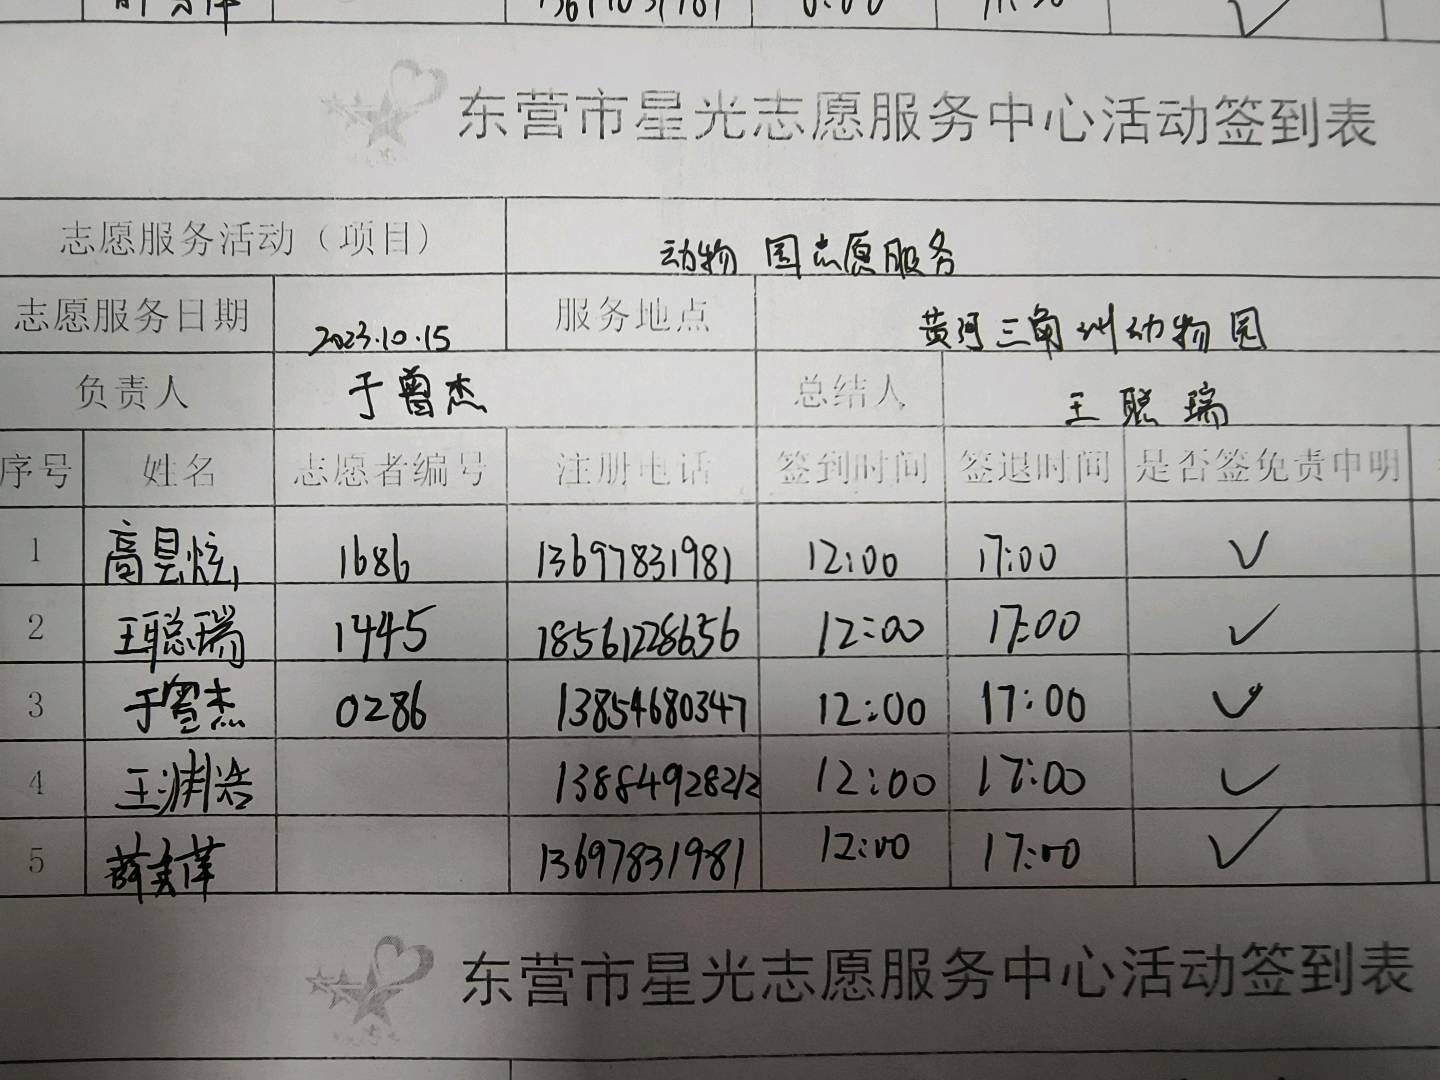 东营市星光志愿服务中心活动签到表
志愿服务活动（项目） 动物园志愿服务
志愿服务日期 2023.10.15 服务地点 黄河三角洲动物园
负责人 于曾杰 总结人 王聪瑞
序号 姓名 志愿者编号 注册电话 签到时间 签退时间 是否签免责申明
1 高昙炫 1686 13697831981 12:00 17:00 ✓
2 王聪瑞 1445 18561228656 12:00 17:00 ✓
3 于曾杰 0286 13854680347 12:00 17:00 ✓
4 王渊浩 13884928212 12:00 17:00 ✓
5 13697831981 12:00 17:00 ✓
东营市星光志愿服务中心活动签到表